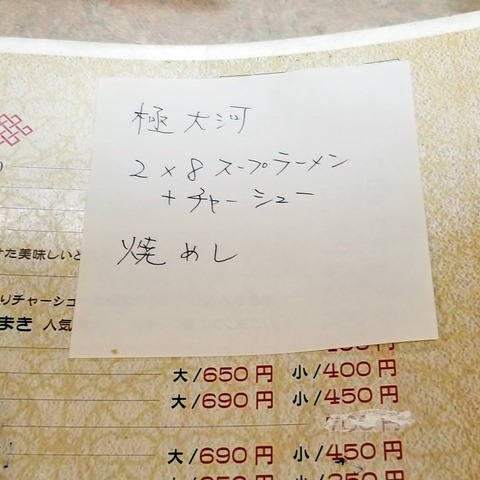 極大河
2×8スープラーメン
+チャーシュー
焼めし
けた美味しいと
りチャーシュ
まき 人気
大/650円 小/400円
大/690円 小/450円
大/690円 小/450円